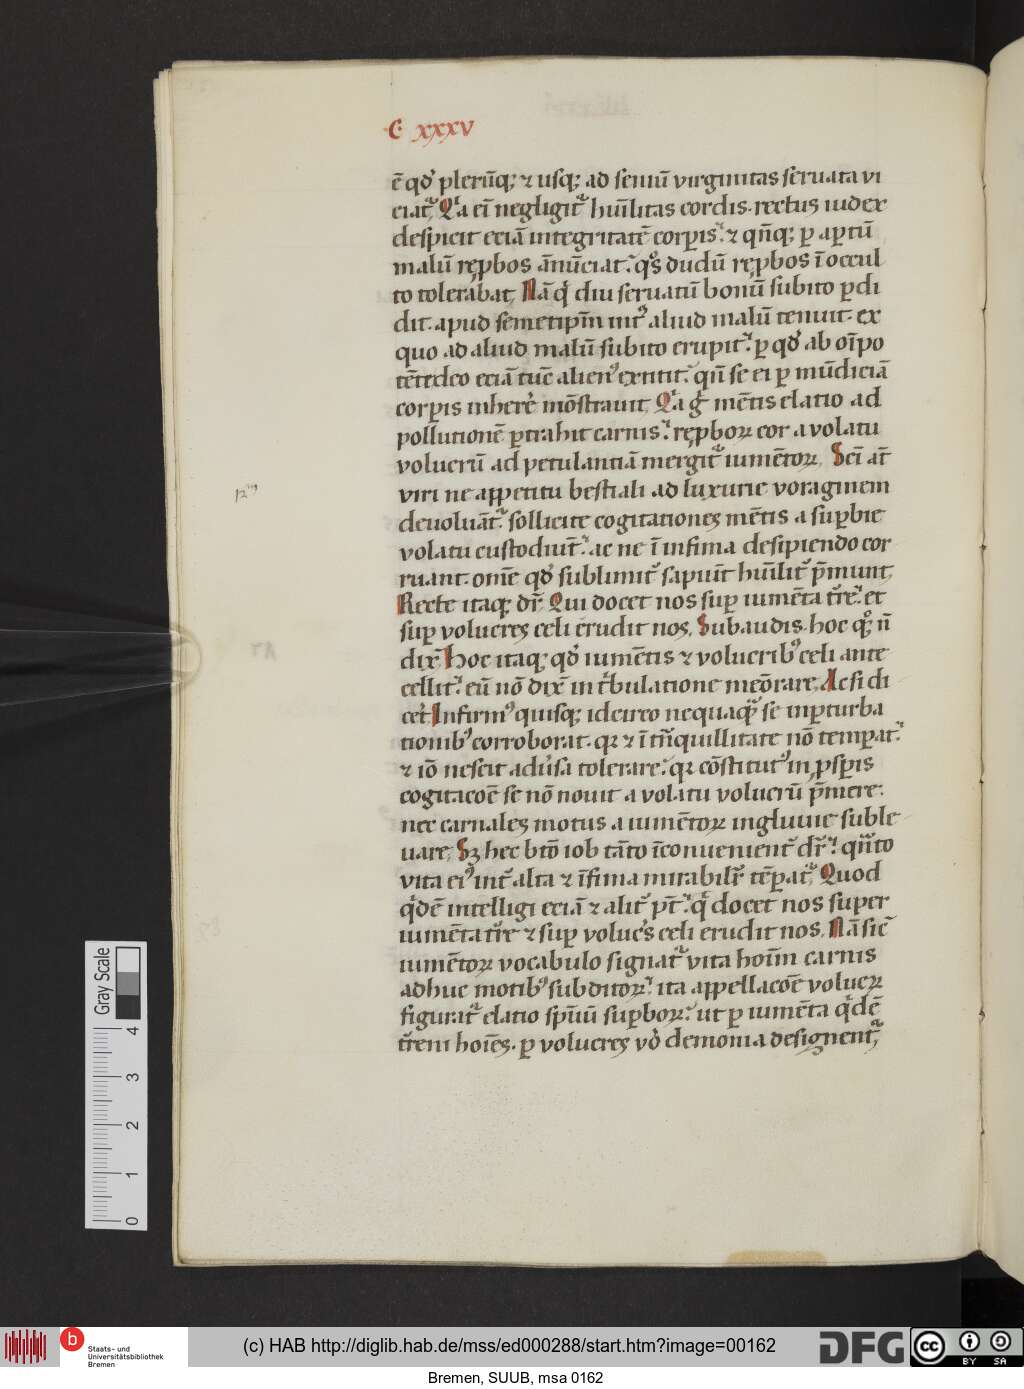 C xxxv
ē qđ plerūq; ⁊ usq; ad seniū virginitas seruata vi
ciat᷑. Qͥa eī negligit᷑ hūilitas cordis. rectus iudex
despicit eciā integritatē corꝑis. ⁊ qn̄q; ꝑ aꝑtū
malū rep̱bos ān̄ūciat. qͦs dudū rep̱bos ī occul
to tolerabat. Nā qͥ diu seruatū bonū subito ꝑdi
dit. apud semetip̄m int᷑ aliud malū tenuit. ex
quo ad aliud malū subito erupit. ꝑ qđ ab oīpo
tēte deo eciā tūc alienꝰ extitit. qn̄ se ei ꝑ mūdiciā
corꝑis inherē mōstrauit. Qͥa gͦ mētis elatio ad
pollutionē ꝑtrahit carnis. rep̱boꝝ cor a volatu
volucrū ad petulantiā mergit᷑ iumētoꝝ. Scī at̄
viri ne appetitu bestiali ad luxurie voraginem
deuoluāt᷑. sollicite cogitationes mētis a suꝑbie
volatu custodiūt. ac ne ī infima desipiendo cor
ruant. om̄e qđ sublimit᷑ sapiūt hūilit᷑ p̄munt.
Recte itaq; dr̄. Qui docet nos suꝑ iumēta t᷑re. et
suꝑ volucres celi erudit nos. Subaudis. hoc qͦ; n̄
dix̄. Hoc itaq; qđ iumētis ⁊ volucribꝰ celi ante
cellit. eū nō dix̄ in tͥbulatione meōrare. Ac si di
cet᷑. Infirmꝰ quisq; idcirco nequaqͣ se in ꝑturba
tionibꝰ corroborat. qꝛ ⁊ ī tͣn̄quillitate nō temꝑat.
⁊ iō nescit adu᷑sa tolerare. qꝛ cōstitutꝰ in ꝓsꝑis
cogitacōe se nō nouit a volatu volucrū p̄mere.
nec carnales motus a iumētoꝝ ingluuie suble
uare. Sꝫ hec bt̄o iob tāto īconuenient᷑ dr̄. qn̄to
vita eiꝰ int᷑ alta ⁊ īfima mirabilr̄ tēꝑat᷑. Quod
qͥdē intelligi eciā ⁊ alit᷑ pt̄. qͥ docet nos super
iumēta t᷑re ⁊ suꝑ volucs celi erudit nos. Nā sic̄
iumētoꝝ vocabulo signat᷑ vita hoīm carnis
adhuc motibꝰ subditoꝝ. ita appellacōe volucꝝ
figurat᷑ elatio sp̄uū suꝑboꝝ. ut ꝑ iumēta qͥdē
t᷑reni hoīes. ꝑ volucres vͦ demonia designent᷑.
Gray Scale
0 1 2 3 4
b Staats- und
Universitätsbibliothek
Bremen
(c) HAB http://diglib.hab.de/mss/ed000288/start.htm?image=00162
DFG
cc BY SA
Bremen, SUUB, msa 0162